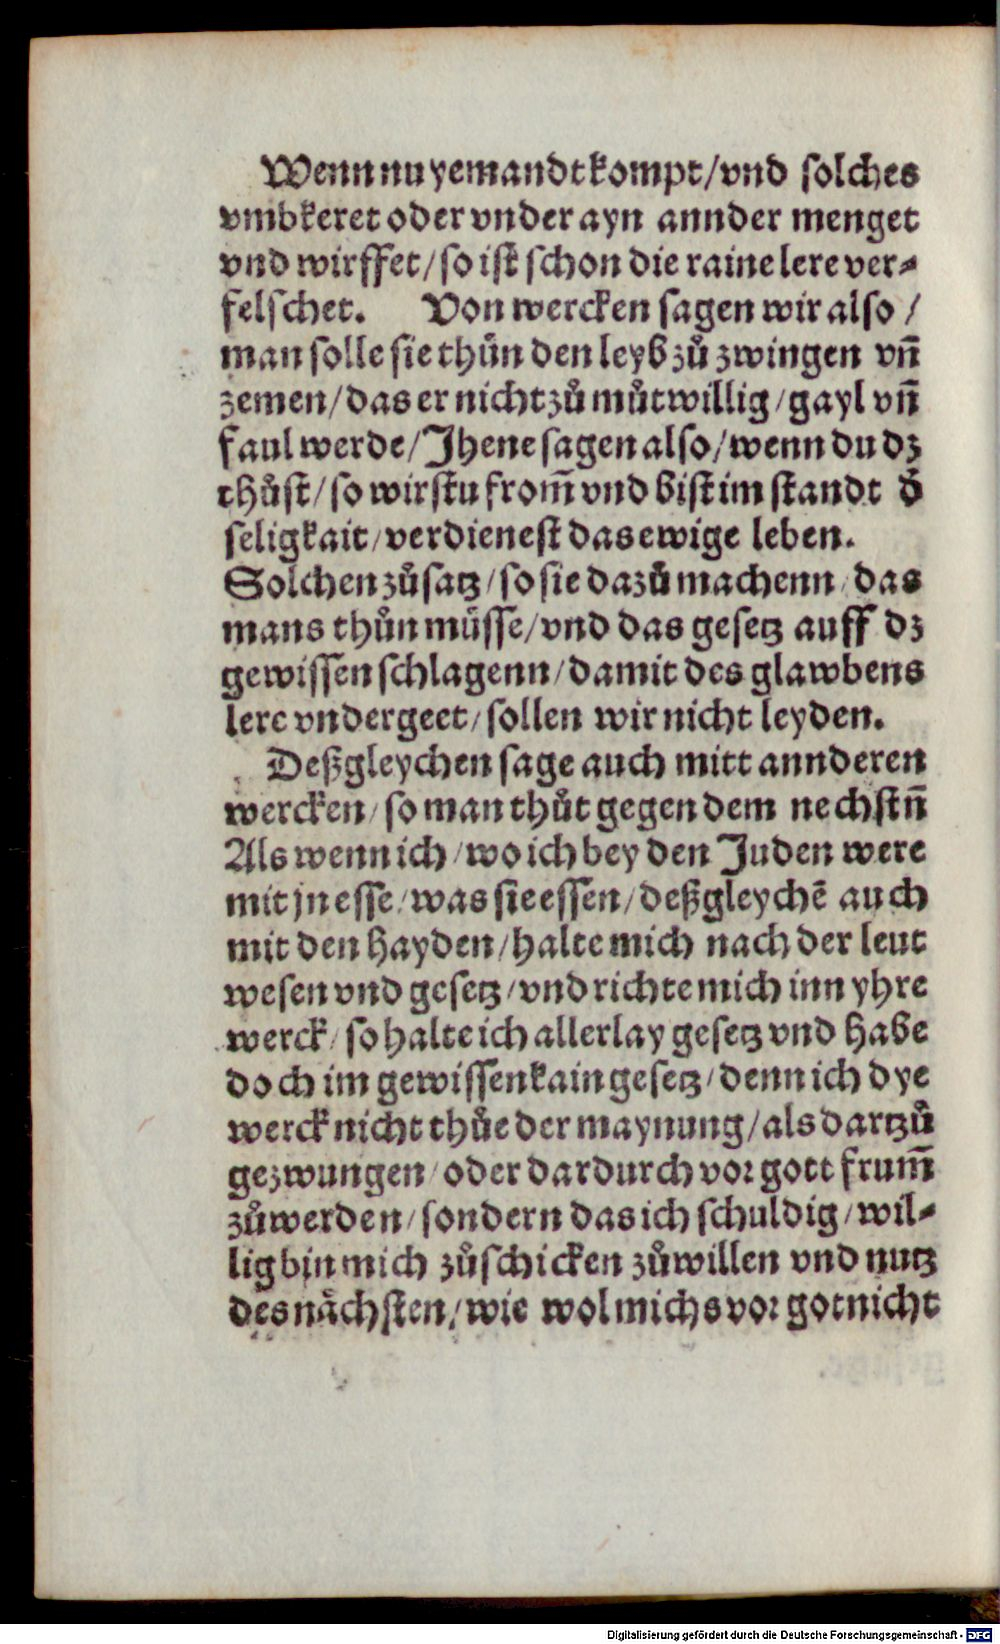 Wenn nu yemandt kompt/ vnd solches
vmbkeret oder vnder ayn annder menget
vnd wirffet/ so ist schon die raine lere ver⸗
felschet. Von wercken sagen wir also /
man solle sie thůn den leyb zů zwingen vñ
zemen/ das er nicht zů můtwillig/ gayl vñ
faul werde/ Jhene sagen also/ wenn du dz
thůst/ so wirstu from̃ vnd bist im standt d̾
seligkait/ verdienest das ewige leben.
Solchen zůsatz/ so sie dazů machenn/ das
mans thůn můsse/ vnd das gesetz auff dz
gewissen schlagenn/ damit des glawbens
lere vndergeet/ sollen wir nicht leyden.
Deßgleychen sage auch mitt annderen
wercken/ so man thůt gegen dem nechstñ
Als wenn ich/ wo ich bey den Juden were
mit jn esse/ was sie essen/ deßgleychẽ auch
mit den hayden/ halte mich nach der leut
wesen vnd gesetz/ vnd richte mich inn yhre
werck/ so halte ich allerlay gesetz vnd habe
doch im gewissen kain gesetz/ denn ich dye
werck nicht thůe der maynung/ als dartzů
gezwungen/ oder dardurch vor gott frum̃
zůwerden/ sondern das ich schuldig/ wil⸗
lig bin mich zůschicken zůwillen vnd nutz
des nåchsten/ wie wol michs vor got nicht
Digitalisierung gefördert durch die Deutsche Forschungsgemeinschaft - DFG